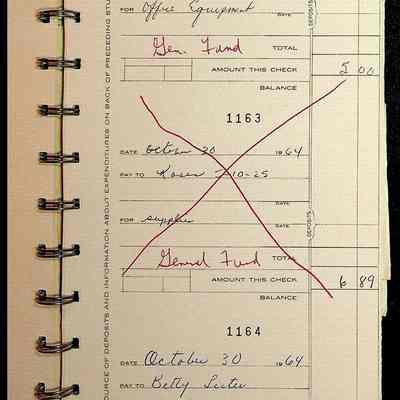 FOR Office Equipment DATE
Gen. Fund TOTAL
AMOUNT THIS CHECK 5 00
BALANCE
1163
DATE October 20 1964
PAY TO Koser 7-10-25
DATE
FOR supplies DATE
General Fund TOTAL
AMOUNT THIS CHECK 6 89
BALANCE
1164
DATE October 30 1964
PAY TO Betty
DEPOSITS
DEPOSITS
OURCE OF DEPOSITS AND INFORMATION ABOUT EXPENDITURES ON BACK OF PRECEDING STU